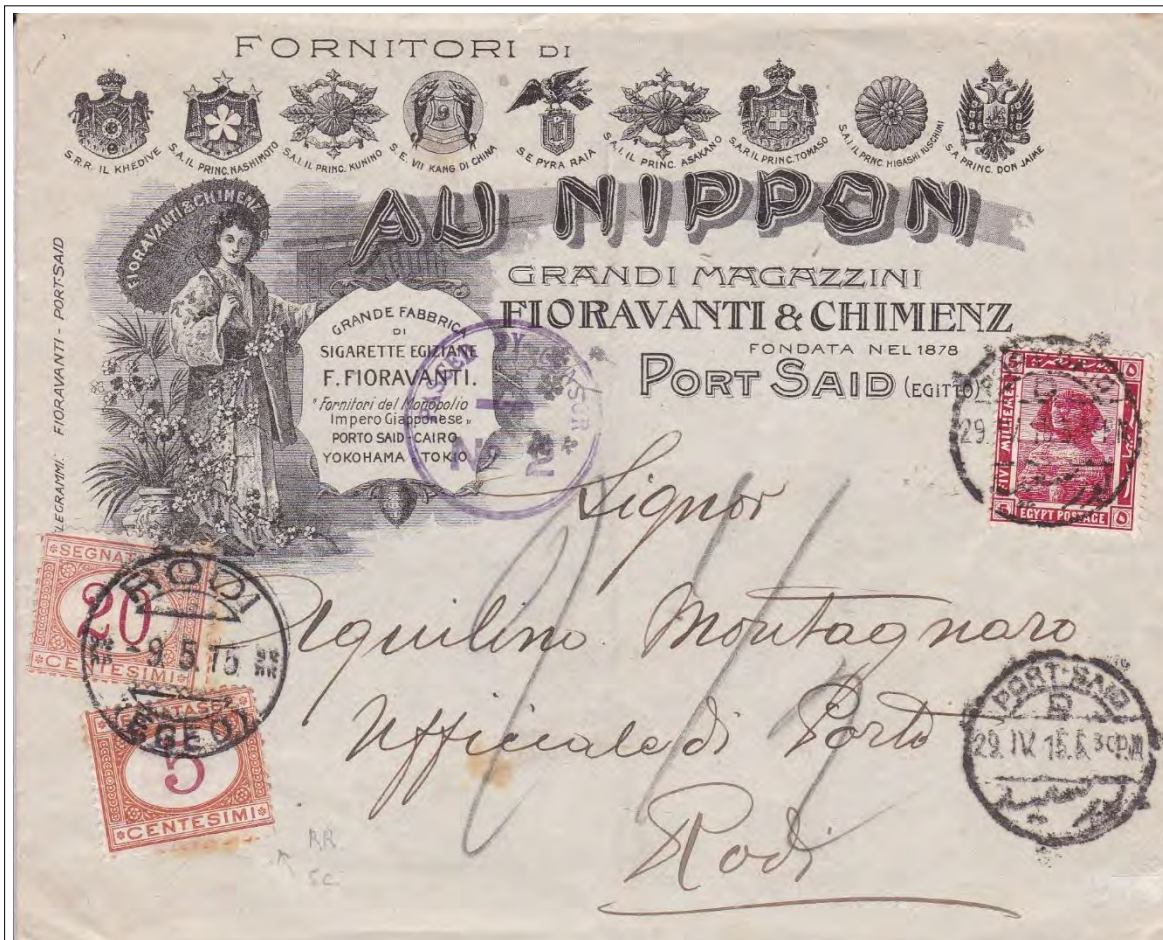 FORNITORI DI
S.R.R. IL KHEDIVE
S.A.I. IL PRINC. NASHIMOTO
S.A.I. IL PRINC. KUNINO
S.E. VII KANG DI CHINA
S.E. PYRA RAIA
S.A.I. IL PRINC. ASAKANO
S.A.R. IL PRINC. TOMASO
S.A.I. IL PRINC. HIGASHI KUSCHIMI
S.A. PRINC. DON JAIME
AU NIPPON
GRANDI MAGAZZINI
FIORAVANTI & CHIMENZ
FONDATA NEL 1878
PORT SAID (EGITTO)
FIORAVANTI & CHIMENZ
LEGRAMMI: FIORAVANTI - PORT-SAID
GRANDE FABBRICA
DI
SIGARETTE EGIZIANE
F. FIORAVANTI.
"Fornitori del Monopolio
Impero Giapponese"
PORTO SAID - CAIRO
YOKOHAMA - TOKIO
BY
No 2
FIVE MILLIEMES
5
٥
EGYPT POSTAGE
Signor
Aquilino Montagnaro
Ufficiale di Porto
Rodi
20
CENTESIMI
RODI
-9.5.15
EGEO
5
CENTESIMI
PORT-SAID
D
29.IV.15.5.30PM
RR
5c.